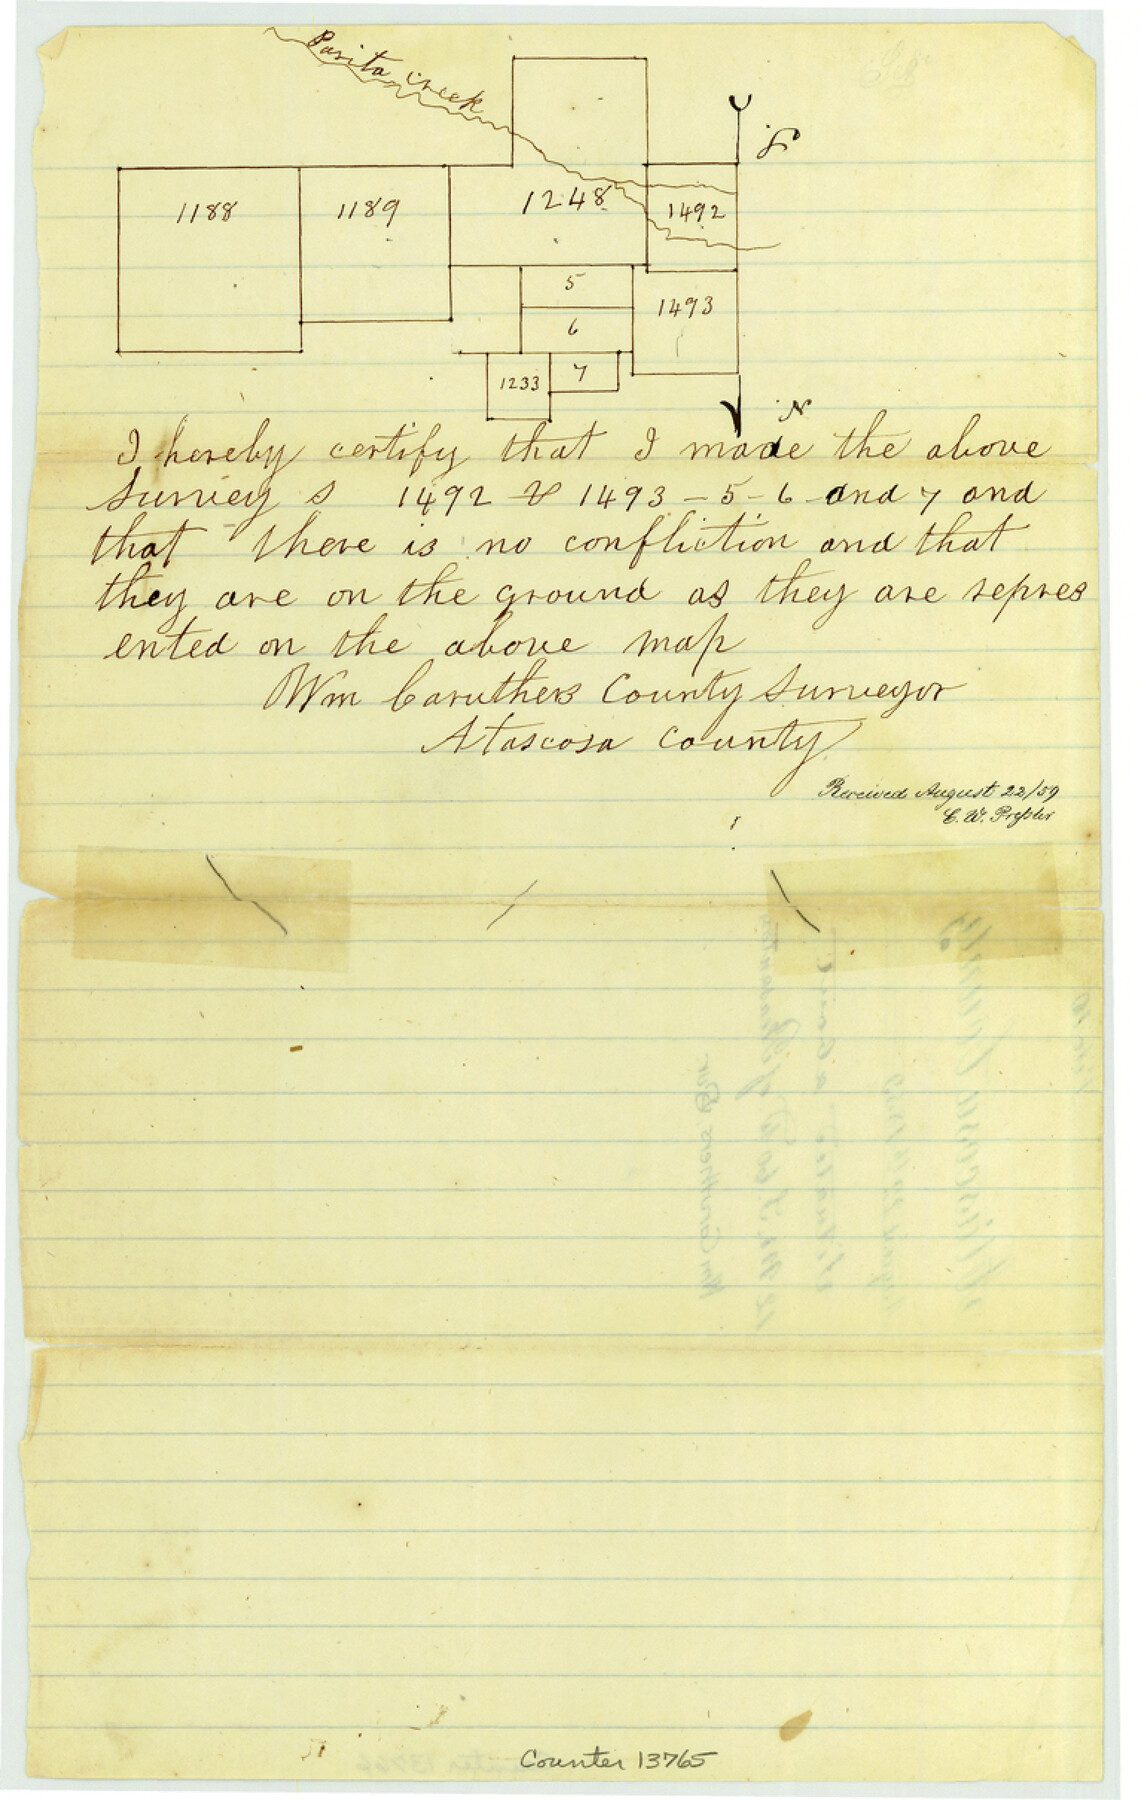 Parita creek
S
1188
1189
1248
1492
5
1493
6
1233
7
N
I hereby certify that I made the above
survey s 1492 & 1493 - 5 - 6 and 7 and
that there is no confliction and that
they are on the ground as they are repres
ented on the above map
Wm Caruthers County Surveyor
Atascosa County
Received August 22/59
C. W. Preßler
Counter 13765